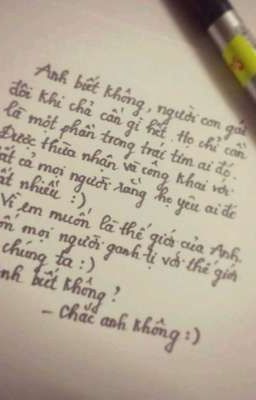 Anh biết không, người con gái
đôi khi chả cần gì hết. Họ chỉ cần
là một phần trong trái tim ai đó.
Được thừa nhận và công khai với
tất cả mọi người rằng họ yêu ai đó
ất nhiều :)
Vì em muốn là thế giới của Anh,
ốn mọi người ganh tị với thế giới
chúng ta :)
nh biết không?
- Chắc anh không :)